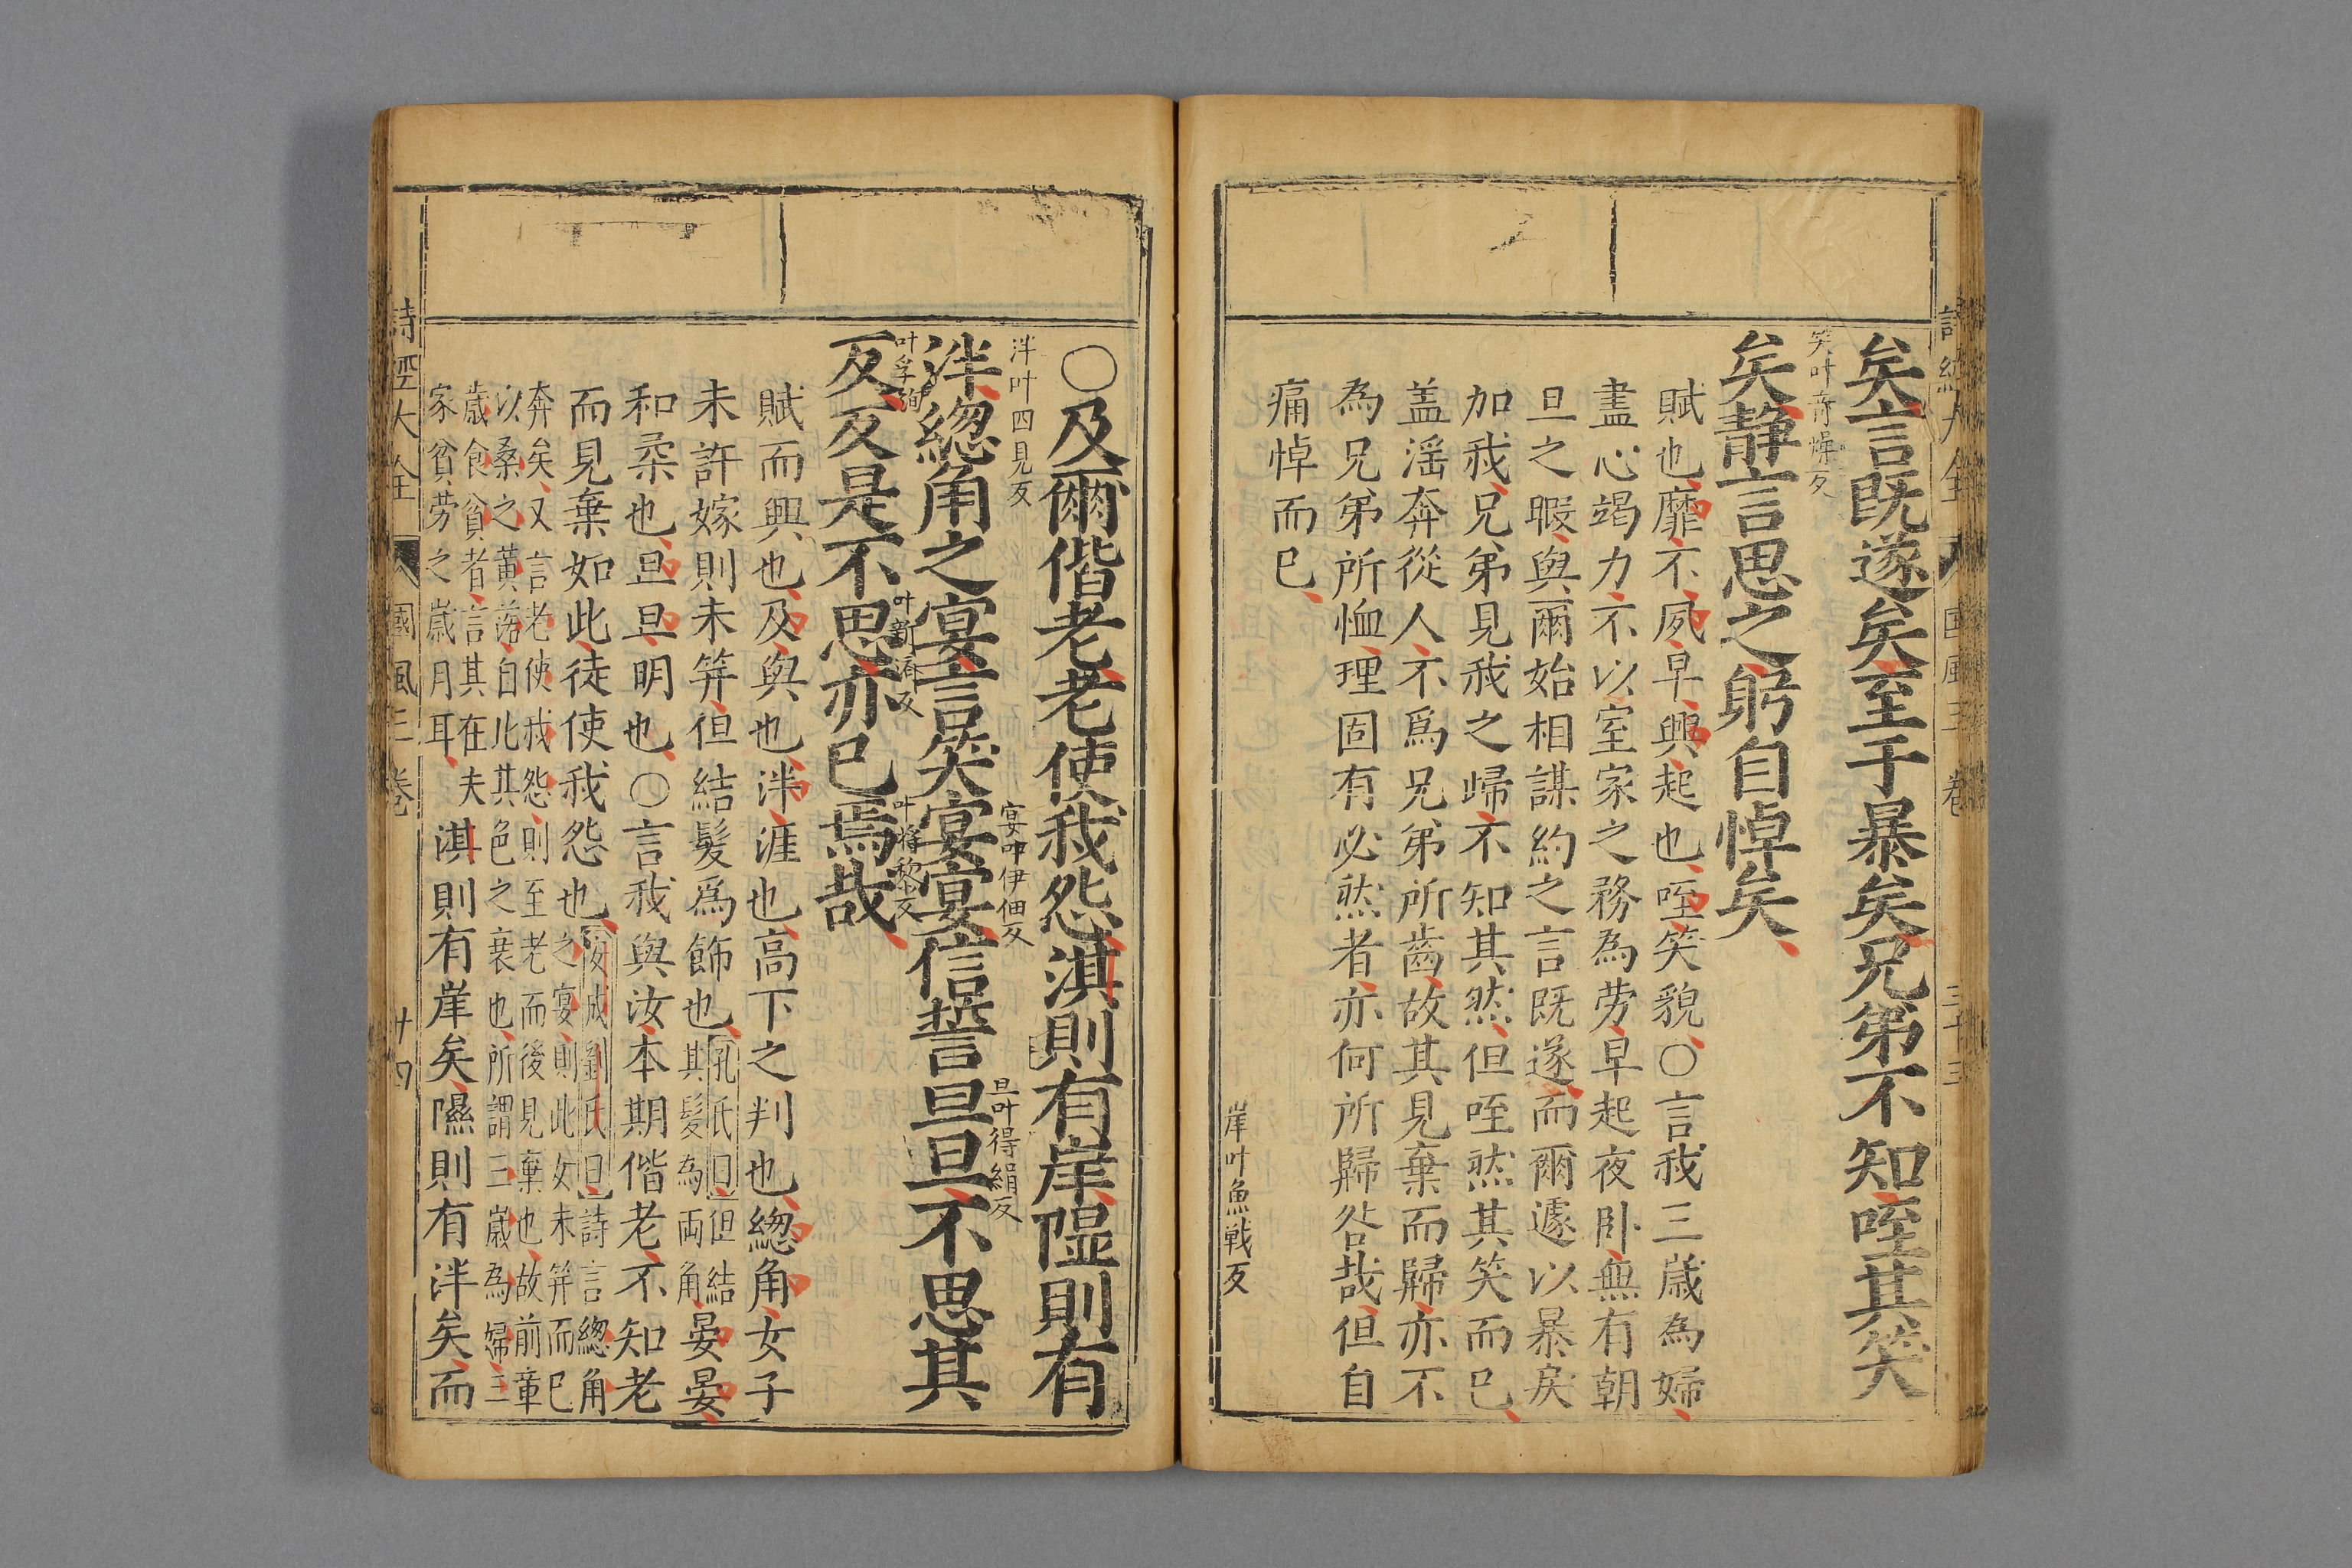 矣言既遂矣至于暴矣兄弟不知咥其笑
笑叶音燥反
矣靜言思之躬自悼矣
賦也靡不夙早興起也咥笑貌○言我三歲為婦
盡心竭力不以室家之務為劳早起夜卧無有朝
旦之暇與爾始相謀約之言既遂而爾遽以暴戾
加我兄弟見我之歸不知其然但咥然其笑而已
盖滛奔從人不爲兄弟所齒故其見棄而歸亦不
為兄弟所恤理固有必然者亦何所歸咎哉但自
痛悼而已
岸叶魚戰反
○及爾偕老老使我怨淇則有岸隰則有
泮叶四見反
宴叶伊佃反
旦叶得絹反
泮緫角之宴言笑宴宴信誓旦旦不思其
叶孚絢反
叶新濟反
叶將黎反
反反是不思亦已焉哉
賦而興也及與也泮涯也高下之判也緫角女子
未許嫁則未笄但結髮爲飾也孔氏曰但結
其髮為兩角晏晏
和柔也旦旦明也○言我與汝本期偕老不知老
而見棄如此徒使我怨也安成劉氏曰詩言緫角
之宴則此女未笄而已
奔矣又言老使我怨則至老而後見棄也故前章
以桑之黃落自比其色之衰也所謂三歲為婦三
歲食貧者言其在夫
家貧劳之歲月耳
淇則有岸矣隰則有泮矣而
詩經大全
國風三卷
廿四